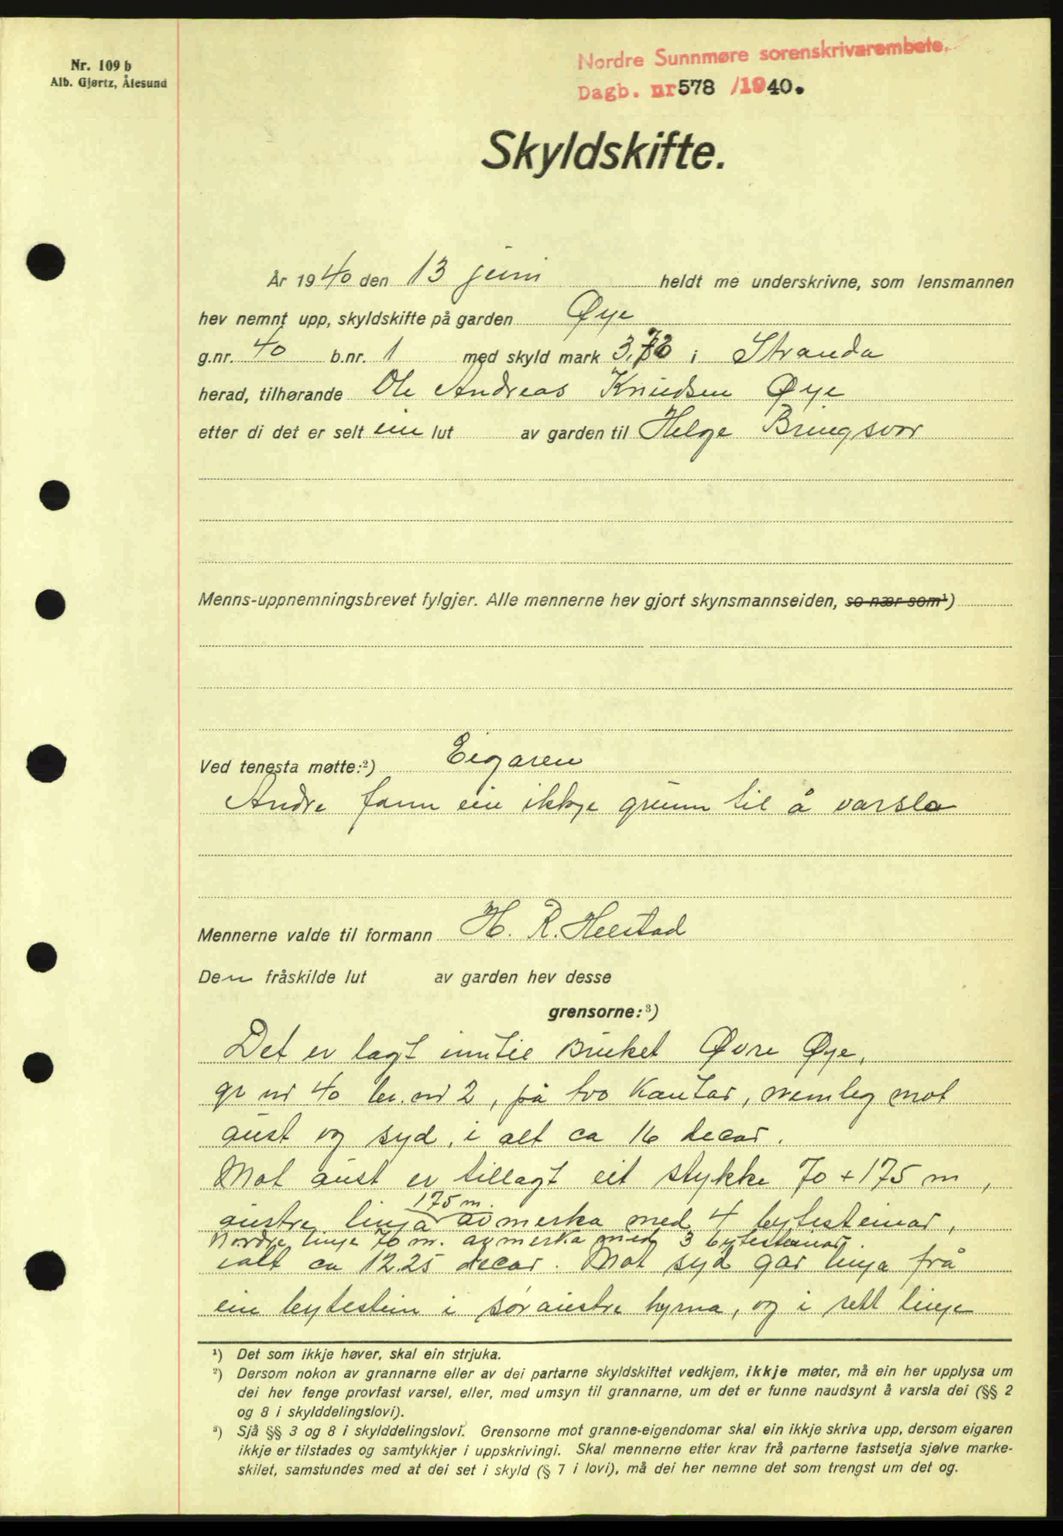 Nr. 109 b
Alb. Gjørtz, Ålesund
Nordre Sunnmøre sorenskrivarembete.
Dagb. nr 578 /1940.
Skyldskifte.
År 1940 den 13 juni heldt me underskrivne, som lensmannen
hev nemnt upp, skyldskifte på garden Øye
g.nr. 40 b.nr. 1 med skyld mark 3, i Stranda
herad, tilhørande Ole Andreas Knudsen Øye
etter di det er selt ein lut av garden til Helge Bringsvor
Menns-uppnemningsbrevet fylgjer. Alle mennerne hev gjort skynsmannseiden, so nær som¹)
Ved tenesta møtte:²) Eigaren
Andre fann ein ikkje grunn til å varsla
Mennerne valde til formann H. R. Helstad
Den fråskilde lut av garden hev desse
grensorne:³)
Det er lagt inntil Bruket Øvre Øye,
gr nr 40 br. nr 2, på tvo kantar, nemleg mot
aust og syd, i alt ca 16 decar.
Mot aust er tillagt eit stykke 70 + 175 m,
175 m.
austre linja avmerka med 4 bytesteinar,
Nordre linje 70 m. avmerka med 3 bytesteinar
ialt ca 12.25 decar. Mot syd går linja frå
ein bytestein i søraustre hyrna, og i rett linje
¹) Det som ikkje høver, skal ein strjuka.
²) Dersom nokon av grannarne eller av dei partarne skyldskiftet vedkjem, ikkje møter, må ein her upplysa um
dei hev fenge provfast varsel, eller, med umsyn til grannarne, um det er funne naudsynt å varsla dei (§§ 2
og 8 i skylddelingslovi).
³) Sjå §§ 3 og 8 i skylddelingslovi. Grensorne mot granne-eigendomar skal ein ikkje skriva upp, dersom eigaren
ikkje er tilstades og samtykkjer i uppskrivingi. Skal mennerne etter krav frå parterne fastsetja sjølve marke-
skilet, samstundes med at dei set i skyld (§ 7 i lovi), må dei her nemne det som trengst um det og.